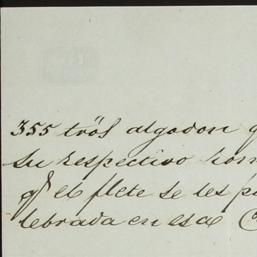 355 trós algodon q
su respectivo con
qe el flete se les p
lebrada en esa C